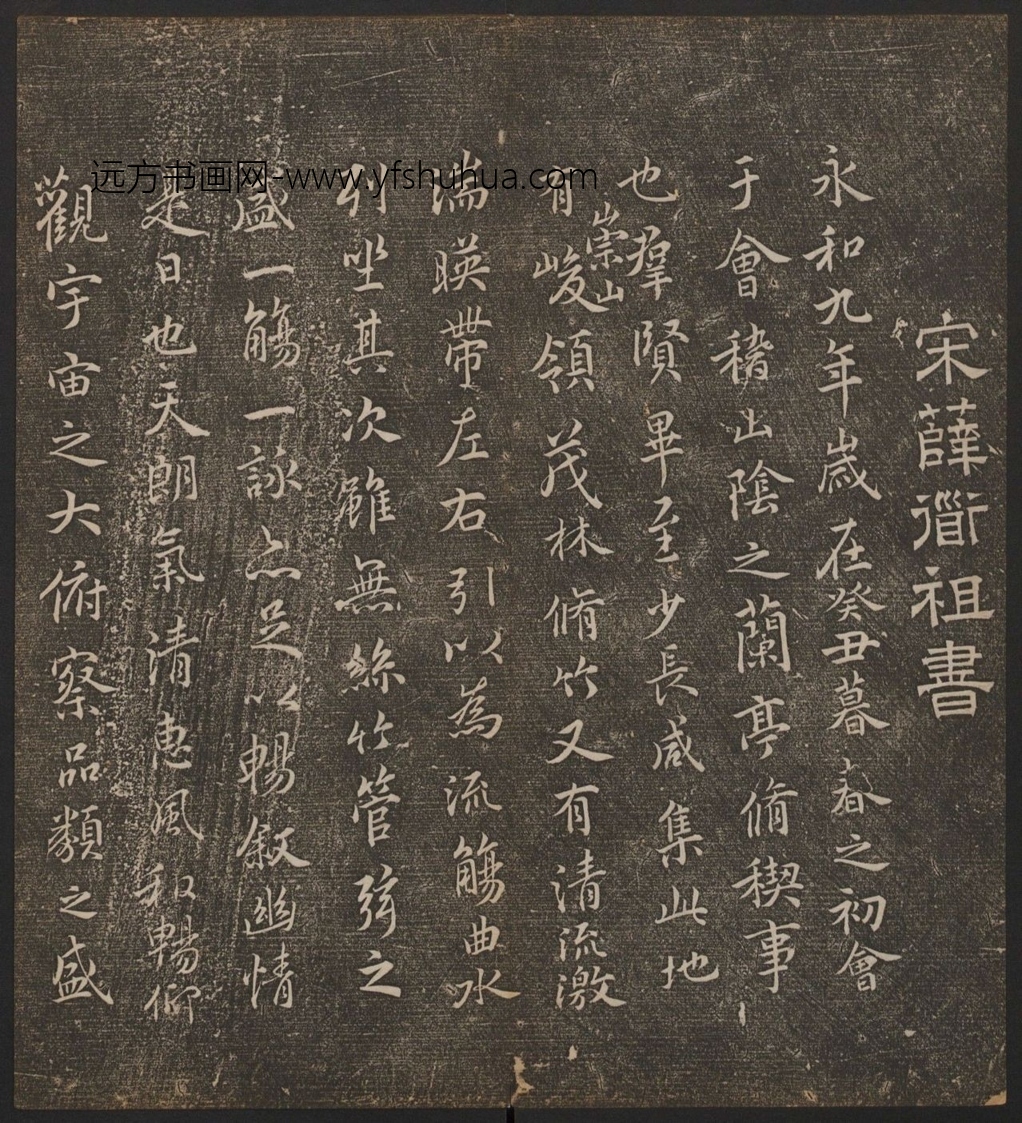 宋薛道祖書
永和九年歲在癸丑暮春之初會
于會稽山陰之蘭亭脩禊事
也羣賢畢至少長咸集此地
有崇山峻領茂林脩竹又有清流激
湍暎帶左右引以為流觴曲水
列坐其次雖無絲竹管弦之
盛一觴一詠亦足以暢敘幽情
是日也天朗氣清惠風和暢仰
觀宇宙之大俯察品類之盛
远方书画网-www.yfshuhua.com